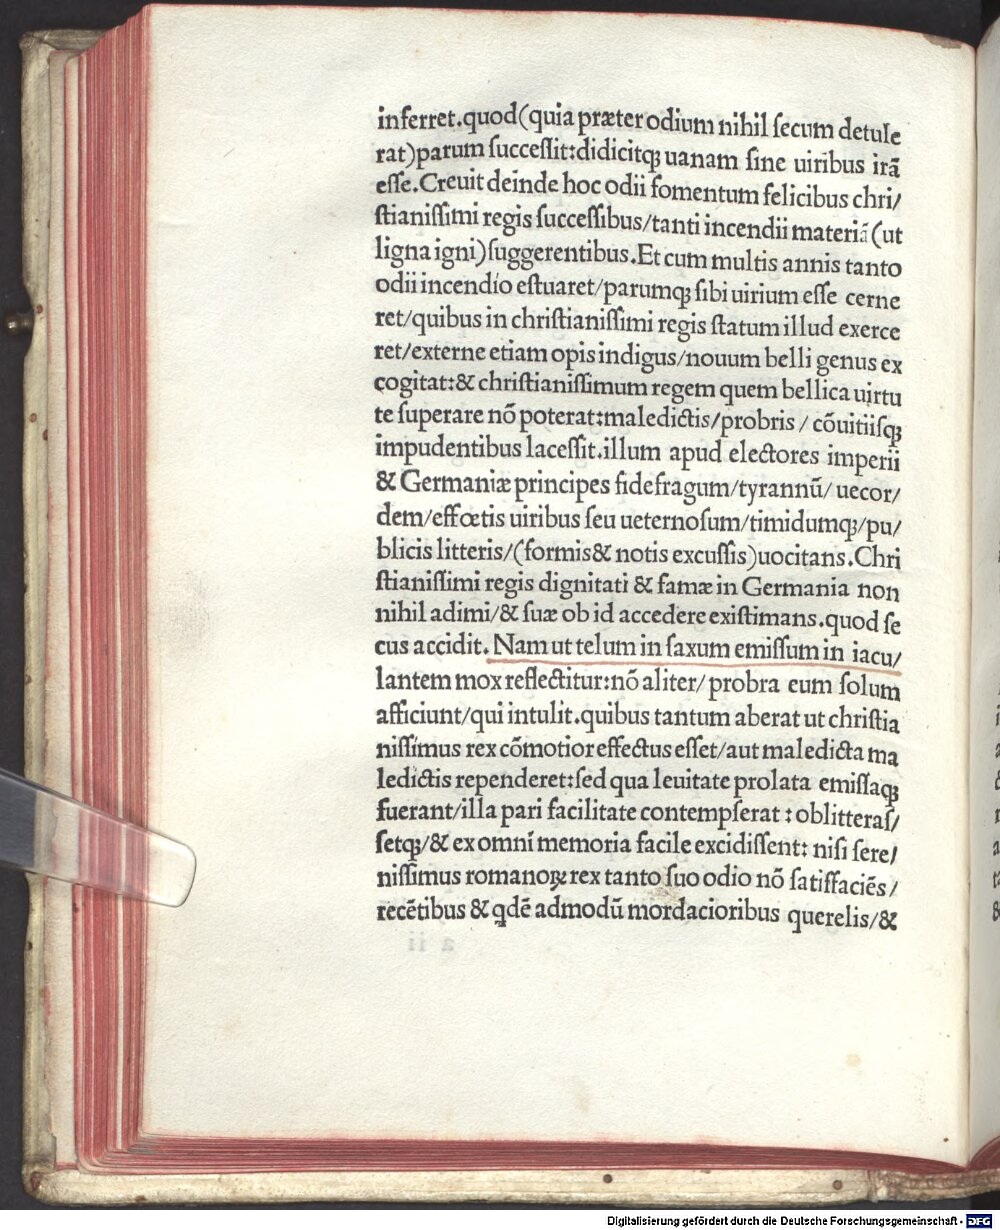 inferret.quod(quia præter odium nihil ſecum detule
rat)parum ſucceſſit:didicitqꝫ uanam ſine uiribus irã
eſſe.Creuit deinde hoc odii fomentum felicibus chri/
ſtianiſſimi regis ſucceſſibus/tanti incendii materiã(ut
ligna igni)ſuggerentibus.Et cum multis annis tanto
odii incendio eſtuaret/parumqꝫ ſibi uirium eſſe cerne
ret/quibus in chriſtianiſſimi regis ſtatum illud exerce
ret/externe etiam opis indigus/nouum belli genus ex
cogitat:& chriſtianiſſimum regem quem bellica uirtu
te ſuperare nõ poterat:maledictis/probris / cõuitiiſqꝫ
impudentibus laceſſit.illum apud electores imperii
& Germaniæ principes fidefragum/tyrannũ/ uecor/
dem/effœtis uiribus ſeu ueternoſum/timidumqꝫ/pu/
blicis litteris/(formis& notis excuſſis)uocitans.Chri
ſtianiſſimi regis dignitati & famæ in Germania non
nihil adimi/& ſuæ ob id accedere exiſtimans.quod ſe
cus accidit. Nam ut telum in ſaxum emiſſum in iacu/
lantem mox reflectitur:nõ aliter/ probra eum ſolum
afficiunt/qui intulit.quibus tantum aberat ut chriſtia
niſſimus rex cõmotior effectus eſſet/aut maledicta ma
ledictis rependeret:ſed qua leuitate prolata emiſſaqꝫ
fuerant/illa pari facilitate contempſerat : oblitteraſ/
ſetqꝫ/& ex omni memoria facile excidiſſent: niſi ſere/
niſſimus romanoꝝ rex tanto ſuo odio nõ ſatiſfaciẽs /
recẽtibus & qdẽ admodũ mordacioribus querelis/&
a ii
Digitalisierung gefördert durch die Deutsche Forschungsgemeinschaft - DFG